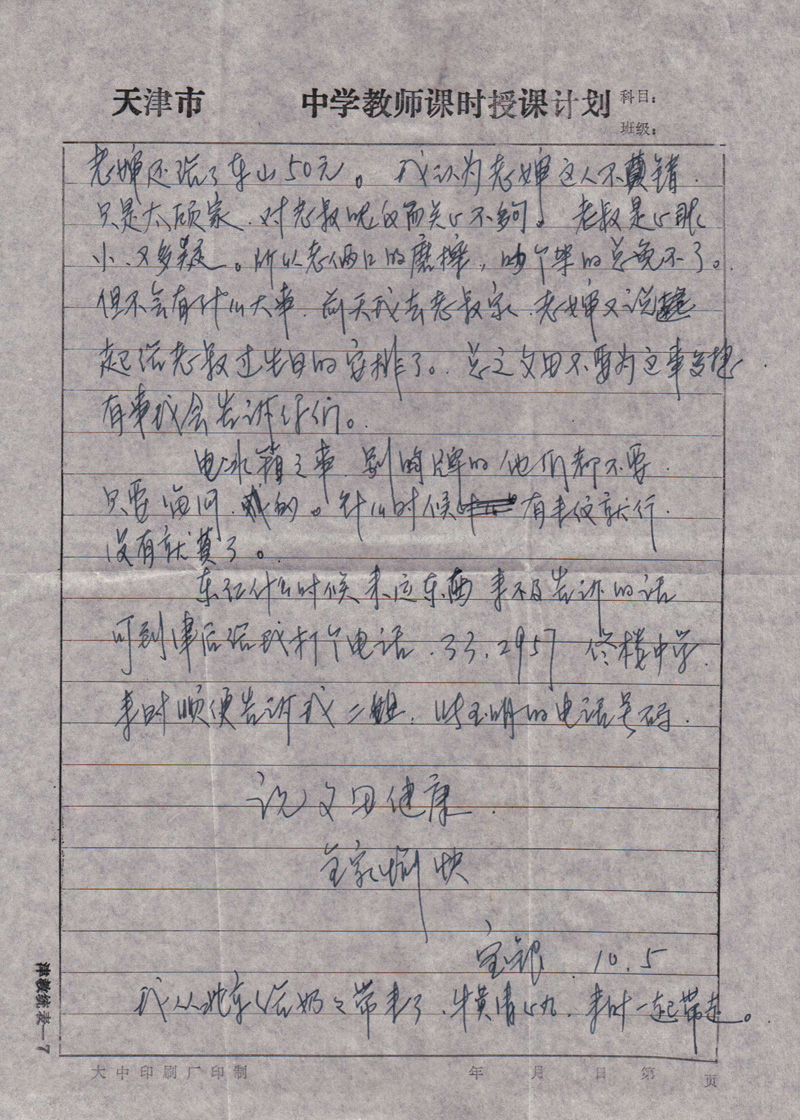 天津市 中学教师课时授课计划 科目：
班级：
老婶还给了东山50元。我认为老婶这人不错.
只是太顾家.对老叔吃的而关心不够。老叔是心眼
小、又多疑。所以老俩口的磨擦,吵个架的总免不了。
但不会有什么大事.前天我去老叔家.老婶又说
起给老叔过生日的安排了。总之文田不要为这事多想.
有事我会告诉你们。
电冰箱之事 别的牌的他们都不要.
只要 的。什么时候 有丰 就行.
没有就算了。
东红什么时候来送东西 来不及告诉的话
可到津后给我打个电话.33.2957 佟楼中学.
来时顺便告诉我二姐. 玉明的电话号码.
祝文田健康.
全家愉快
宝银 10.5
我从北京给奶々带来了.牛黄清心丸.来时一起带走。
津教统表—7
大中印刷厂印制 年 月 日 第 页